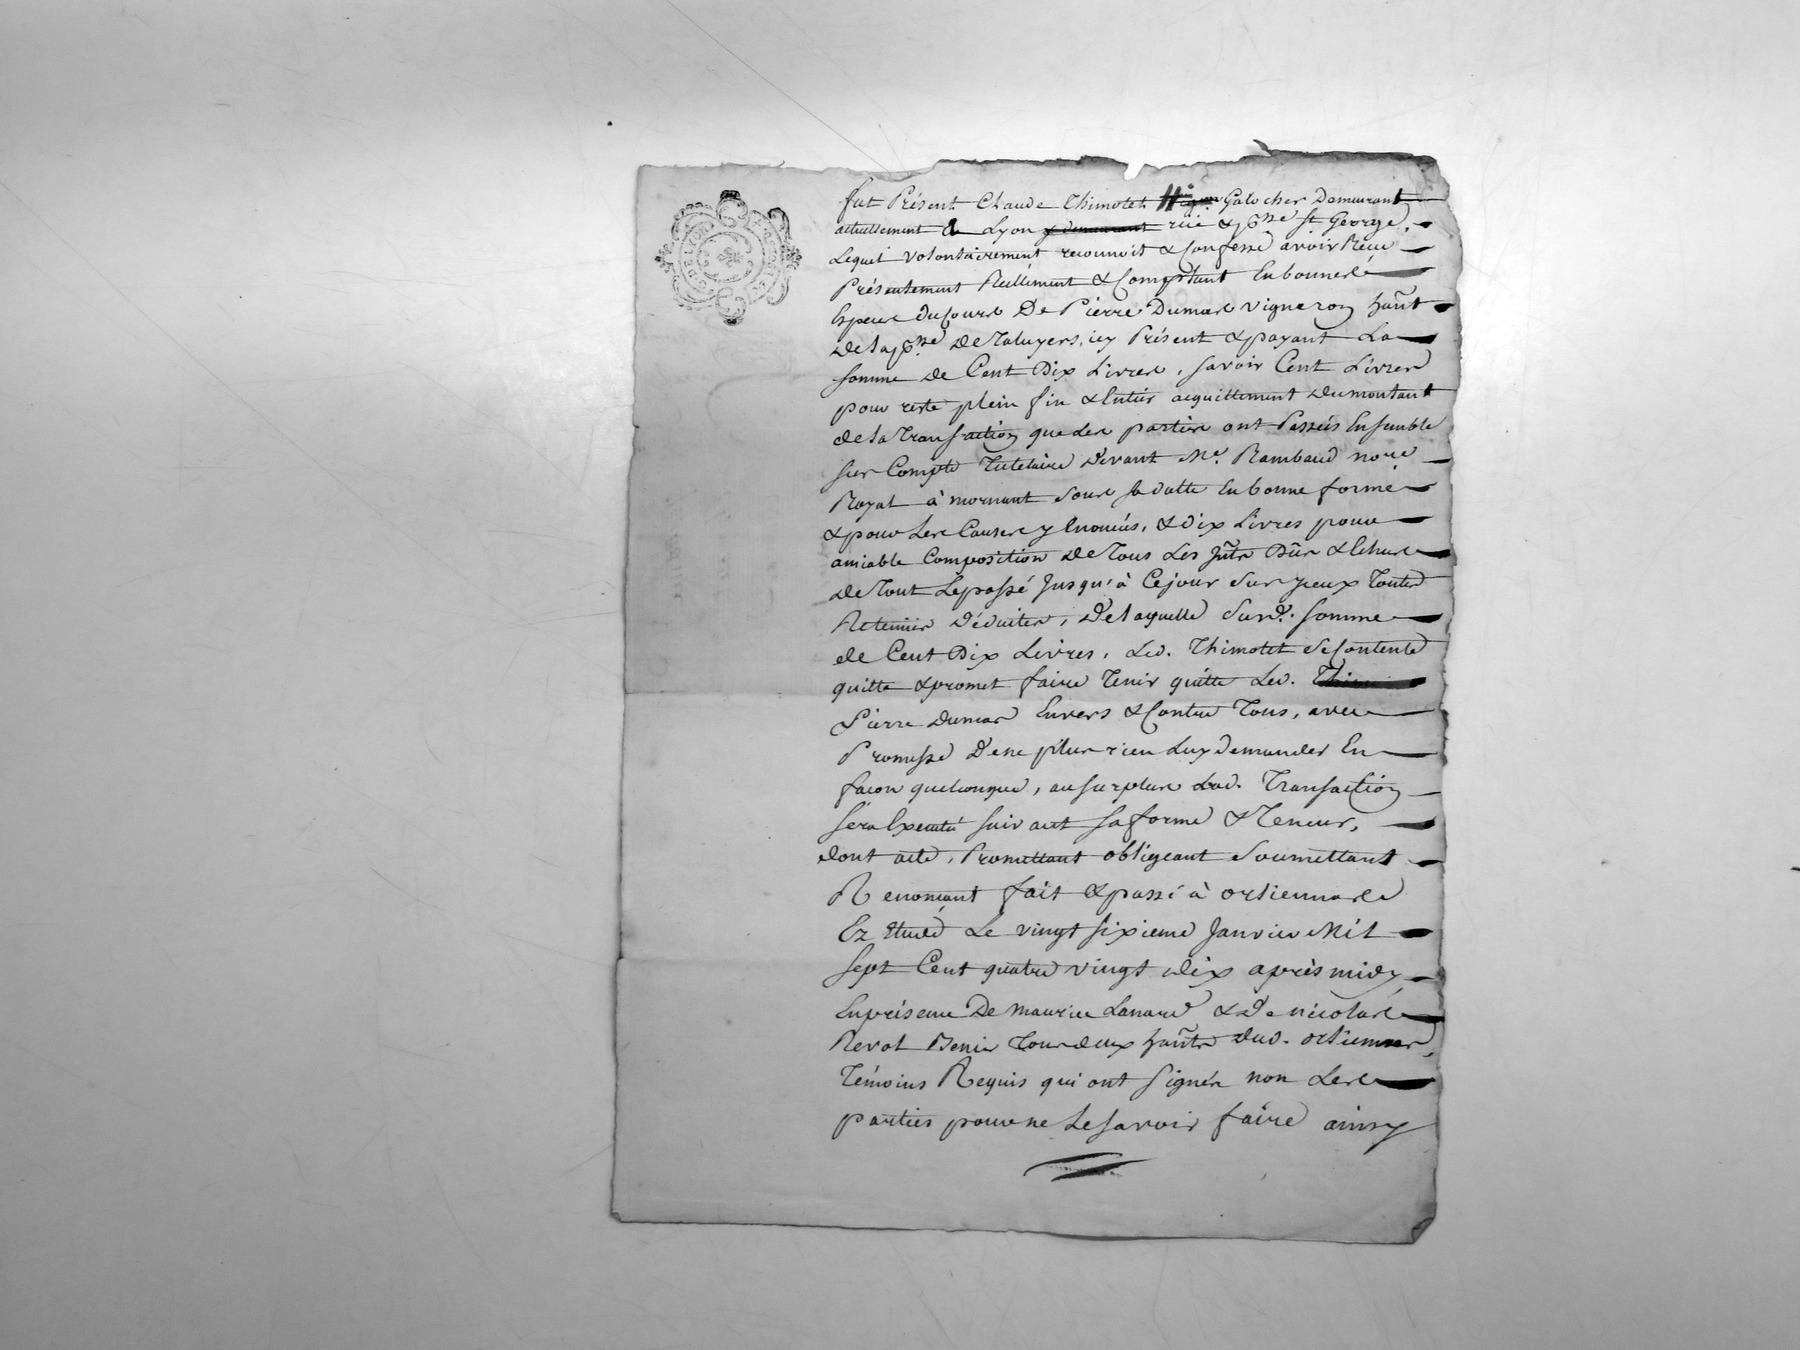 fut Présent Claude Thimotet Galocher Demeurant
actuellement à Lyon rüe & psse st George,
Lequel volontairement reconnoit & Confesse avoir Receu
Présentement Réellement & Comptant En bonnes
Especes du Cours De Pierre Dumas vigneron hant
De la psse De Taluyers, icy Présent & payant La
somme de Cent Dix Livres, savoir Cent Livres
pour reste plein fin & Entier acquittement du montant
de la Transaction que les parties ont Passées Ensemble
sur Compte Tutelaire Devant Me. Rambaud nore
Royal à mornant sous sa datte En bonne forme
& pour Les Causes y Enoncés, & dix Livres pour
amiable Composition De Tous Les Jnts Dûs & Echus
De Tout Le passé Jusqu'à Ce jour sur yceux Toutes
Retenües Déduites, De laquelle susd. somme
de Cent Dix Livres, Led. Thimotet se Contente
quitte & promet faire Tenir quitte Led.
Pierre Dumas Envers & Contre Tous, avec
Promesse De ne plus rien Luy Demander En
facon quelconque, au surplus Lad. Transaction
sera Executé suivant sa forme & Teneur,
dont acte, Promettant obligeant soumettant
Renoncant fait & passé à orlienas
Ez Etude Le vingt sixieme Janvier Mil
sept Cent quatre vingt dix après midy
En présence De maurice & De nicolas
Tous deux hants dud. orlienas,
Témoins Requis qui ont signés non Les
parties pour ne Le savoir faire ainsy